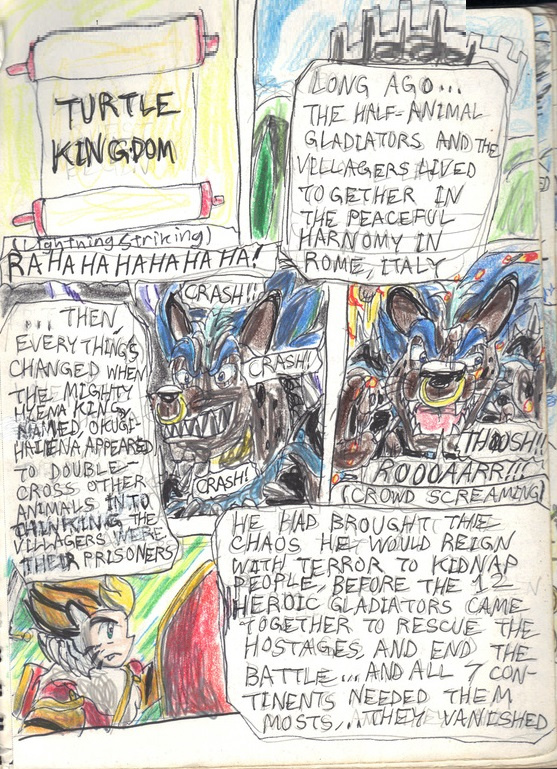 TURTLE
KINGDOM
LONG AGO...
THE HALF-ANIMAL
GLADIATORS AND THE
VILLAGERS LIVED
TOGETHER IN
THE PEACEFUL
HARNOMY IN
ROME, ITALY
(Lightning Striking)
RAHAHAHAHAHAHA!
... THEN,
EVERYTHING'S
CHANGED WHEN
THE MIGHTY
HYENA KING,
NAMED, OKUGI-
HAIENA APPEARED
TO DOUBLE-
CROSS OTHER
ANIMALS INTO
THINKING THE
VILLAGERS WERE
THEIR PRISONERS
CRASH!!
CRASH!
CRASH!
THOOSH!!
ROOOAARR!!!
(CROWD SCREAMING)
HE HAD BROUGHT THE
CHAOS HE WOULD REIGN
WITH TERROR TO KIDNAP
PEOPLE, BEFORE THE 12
HEROIC GLADIATORS CAME
TOGETHER TO RESCUE THE
HOSTAGES, AND END THE
BATTLE... AND ALL 7 CON-
TINENTS NEEDED THEM
MOSTS,... THEY VANISHED